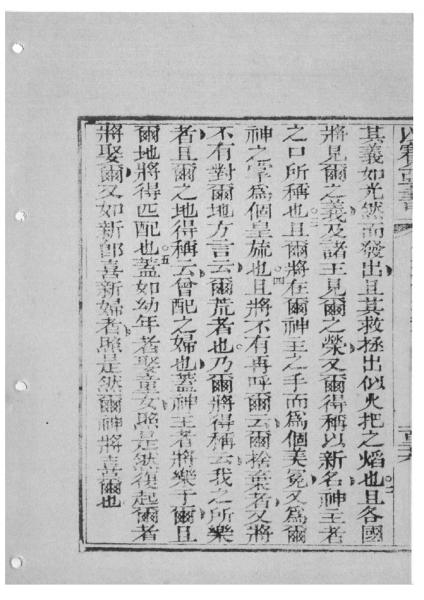 其義如光然而發出且其救拯出似火把之熖也二且各國
將見爾之義及諸王見爾之榮又爾得稱以新名神王者
之口所稱也三且爾將在爾神王之手而爲個美冕又爲爾
神之掌爲個皇旒也四且將不有再呼爾云爾捨棄者又將
不有對爾地方言云爾荒者也乃爾將得稱云我之所樂
者且爾之地得稱云曾配之婦也蓋神王者將樂于爾且
爾地將得匹配也五蓋如幼年者娶童女照是然復起爾者
將娶爾又如新郎喜新婦者照是然爾神將喜爾也